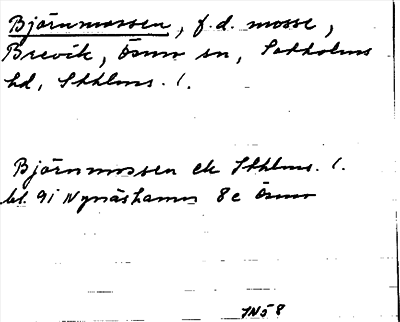 Björnmossen, f.d. mosse,
Brevik, Ösmo sn, Sotholms
hd, Sthlms. l.
Björnmossen ek Sthlms. l.
bl. 9i Nynäshamn 8c Ösmo
JN58